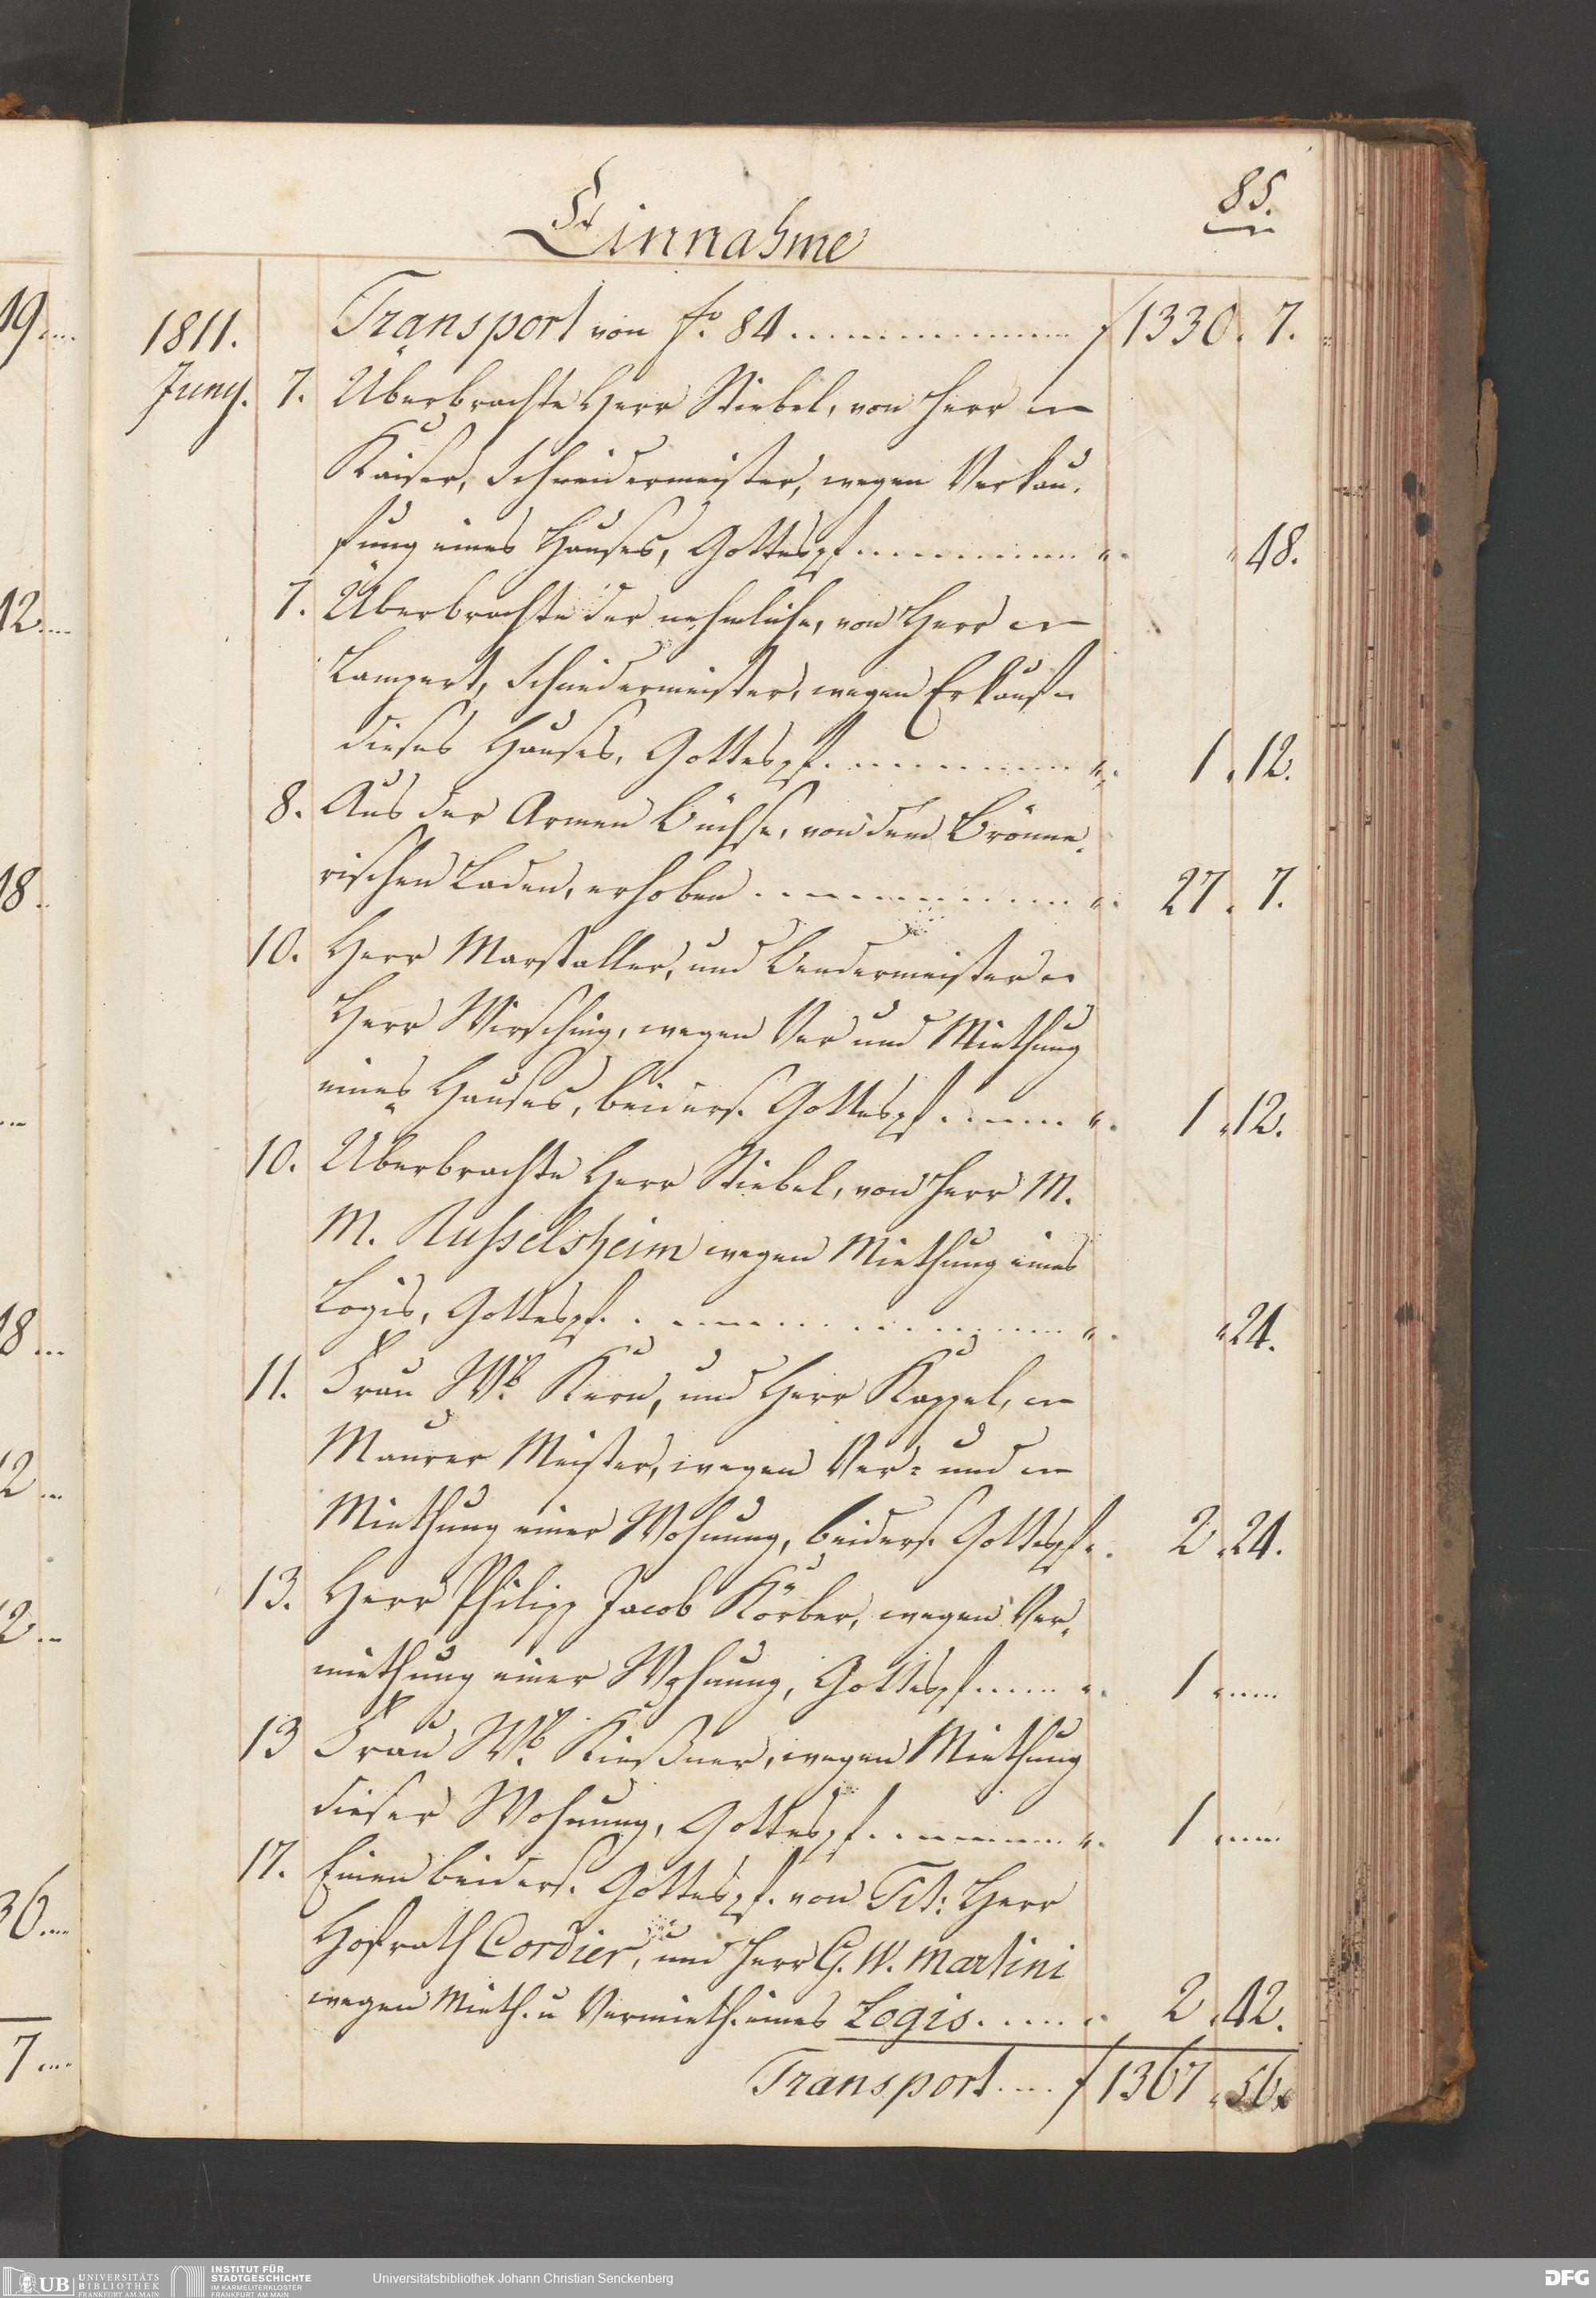 85.
Einnahme
1811. Transport von fo. 84 ........ f 1330. 7.
Juny. 7. Überbrachte Herr Stiebel, von Herr
Kaiser, Schneidermeister, wegen Verkau-
fung eines Hauses, Gottespf. ........ " 48.
7. Überbrachte der nehmliche, von Herr
Lampert, Schneidermeister, wegen Erkauf
dieses Hauses, Gottespf. ........ " 1 " 12.
8. Aus der Armen Büchse, von dem Brönne-
rischen Laden, erhoben ........ " 27. 7.
10. Herr Marstaller, und Bendermeister
Herr Wirsching, wegen Ver und Miethung
eines Hauses, beiders. Gottespf. ...... " 1 " 12.
10. Überbrachte Herr Stiebel, von Herr M.
M. Russelsheim wegen Miethung eines
Logis, Gottespf. ........ " 24.
11. Frau Wb. Kern, und Herr Kappel,
Maurer Meister, wegen Ver- und
Miethung einer Wohnung, beiders. Gottespf. " 2 " 24.
13. Herr Philipp Jacob Körber, wegen Ver-
miethung einer Wohnung, Gottespf. ..... " 1 " ....
13 Frau Wb. Kießner, wegen Miethung
dieser Wohnung, Gottespf. ........ " 1 ....
17. Einen beiders. Gottespf. von Tit: Herr
Hofrath Cordier, und Herr G. W. Martini
wegen Mieth. u Vermieth. eines Logis ...... 2 " 42.
Transport .... f 1367 " 56x
19 ....
12 ....
18 .
18 ...
12 ...
12 ...
36 ...
7 ....
UB UNIVERSITÄTS
BIBLIOTHEK
FRANKFURT AM MAIN
INSTITUT FÜR
STADTGESCHICHTE
IM KARMELITERKLOSTER
FRANKFURT AM MAIN
Universitätsbibliothek Johann Christian Senckenberg
DFG